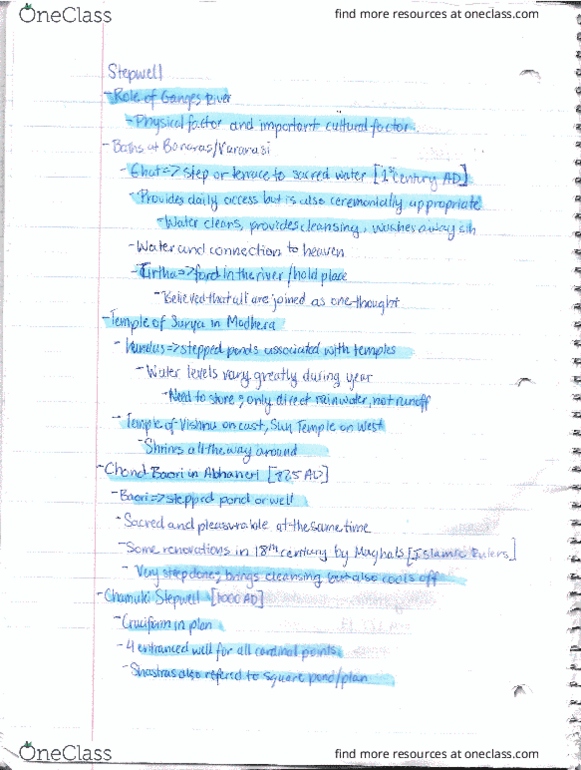 OneClass
find more resources at oneclass.com
Stepwell
- Role of Ganges River
- Physical factor and important cultural factor
- Baths at Banaras/Varanasi
- Ghat => step or terrace to sacred water [1st century AD]
- Provides daily access but is also ceremonially appropriate
- Water cleans, provides cleansing, washes away sin
- Water and connection to heaven
- Tirtha => ford in the river / hold place
- Believed that all are joined as one thought
- Temple of Surya in Modhera
- Kundus => stepped ponds associated with temples
- Water levels vary greatly during year
- Need to store; only direct rainwater, not runoff
- Temple of Vishnu on east, Sun Temple on West
- Shrines all the way around
- Chand Baori in Abhaneri [825 AD]
- Baori => stepped pond or well
- Sacred and pleasurable at the same time
- Some renovations in 18th century by Mughals [Islamic Rulers]
- Very step done; brings cleansing but also cools off
- Chamuki Stepwell [1000 AD]
- Cruciform in plan
- 4 entranced well for all cardinal points
- Shastras also refered to square pond/plan
OneClass
find more resources at oneclass.com